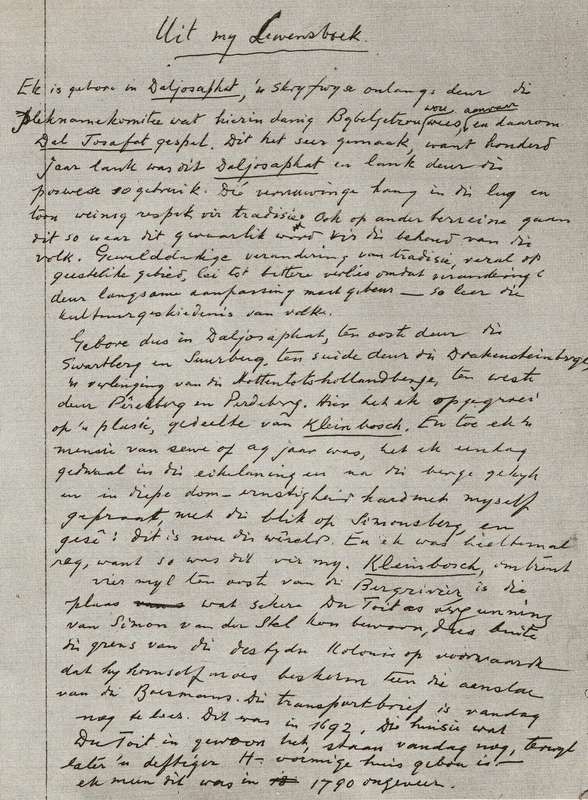 Uit my Lewensboek.
Ek is gebore in Daljosaphat, 'n skryfwyse onlangs deur die
Pleknamekomitee wat hierin danig Bybelgetrou wou wees, en daarom
Dal Josafat gespel. Dit het seer gemaak, want honderd
jaar lank was dit Daljosaphat en lank deur die
poswese so gebruik. Dié vernuwinge hang in die lug en
toon weinig respek vir tradisie. Ook op ander terreine gaan
dit so waar dit gevaarlik word vir die behoud van die
volk. Gewelddadige verandering van tradisie, veral op
geestelike gebied, lei tot bittere verlies omdat verandering
deur langsame aanpassing moet gebeur — so leer die
kultuurgeskiedenis van volke.
Gebore dus in Daljosaphat, ten ooste deur die
Swartberg en Suurberg, ten suide deur die Drakensteinberge,
'n verlenging van die Hottentotshollandberge, ten weste
deur Pêrelberg en Perdeberg. Hier het ek opgegroei
op 'n plasie, gedeelte van Kleinbosch. En toe ek 'n
mensie van sewe of ag jaar was, het ek eendag
gedwaal in die eikelaning en na die berge gekyk
en in diepe dom-ernstigheid hard met myself
gepraat, met die blik op Simonsberg, en
gesê: dit is nou die wêreld. En ek was heeltemal
reg, want so was dit vir my. Kleinbosch, omtrent
vier myl ten ooste van die Bergrivier is die
plaas wat sekere Du Toit as vergunning
van Simon van der Stel kon bewoon, dus buite
die grens van die destydse Kolonie op voorwaarde
dat hy homself moes beskerm teen die aanslae
van die Boesmans. Die transportbrief is vandag
nog te lees. Dit was in 1692. Die huisie wat
Du Toit in gewoon het, staan vandag nog, terwyl
later 'n deftiger H-vormige huis gebou is —
ek meen dit was in 1790 ongeveer.